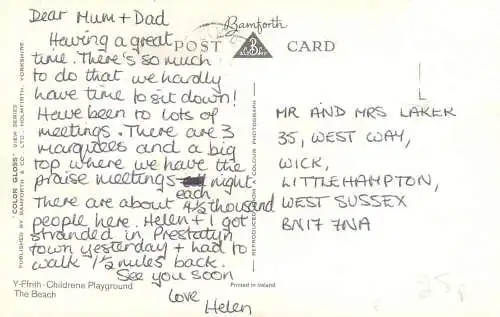 Dear Mum + Dad
Having a great
time. There's so much
to do that we hardly
have time to sit down!
Have been to lots of
meetings. There are 3
marquees and a big
top where we have the
praise meetings each night
There are about 4½ thousand
people here. Helen + I got
stranded in Prestatyn
town yesterday + had to
walk 1½ miles back.
See you soon
love
Helen
Bamforth
POST CARD
MR AND MRS LAKER
35, WEST WAY,
WICK,
LITTLEHAMPTON,
WEST SUSSEX
BN17 7NA
"COLOR GLOSS" VIEW SERIES
PUBLISHED BY BAMFORTH & CO. LTD., HOLMFIRTH, YORKSHIRE
REPRODUCED FROM A COLOUR PHOTOGRAPH
Y-Ffrith-Childrens Playground
The Beach
Printed in Ireland
25p